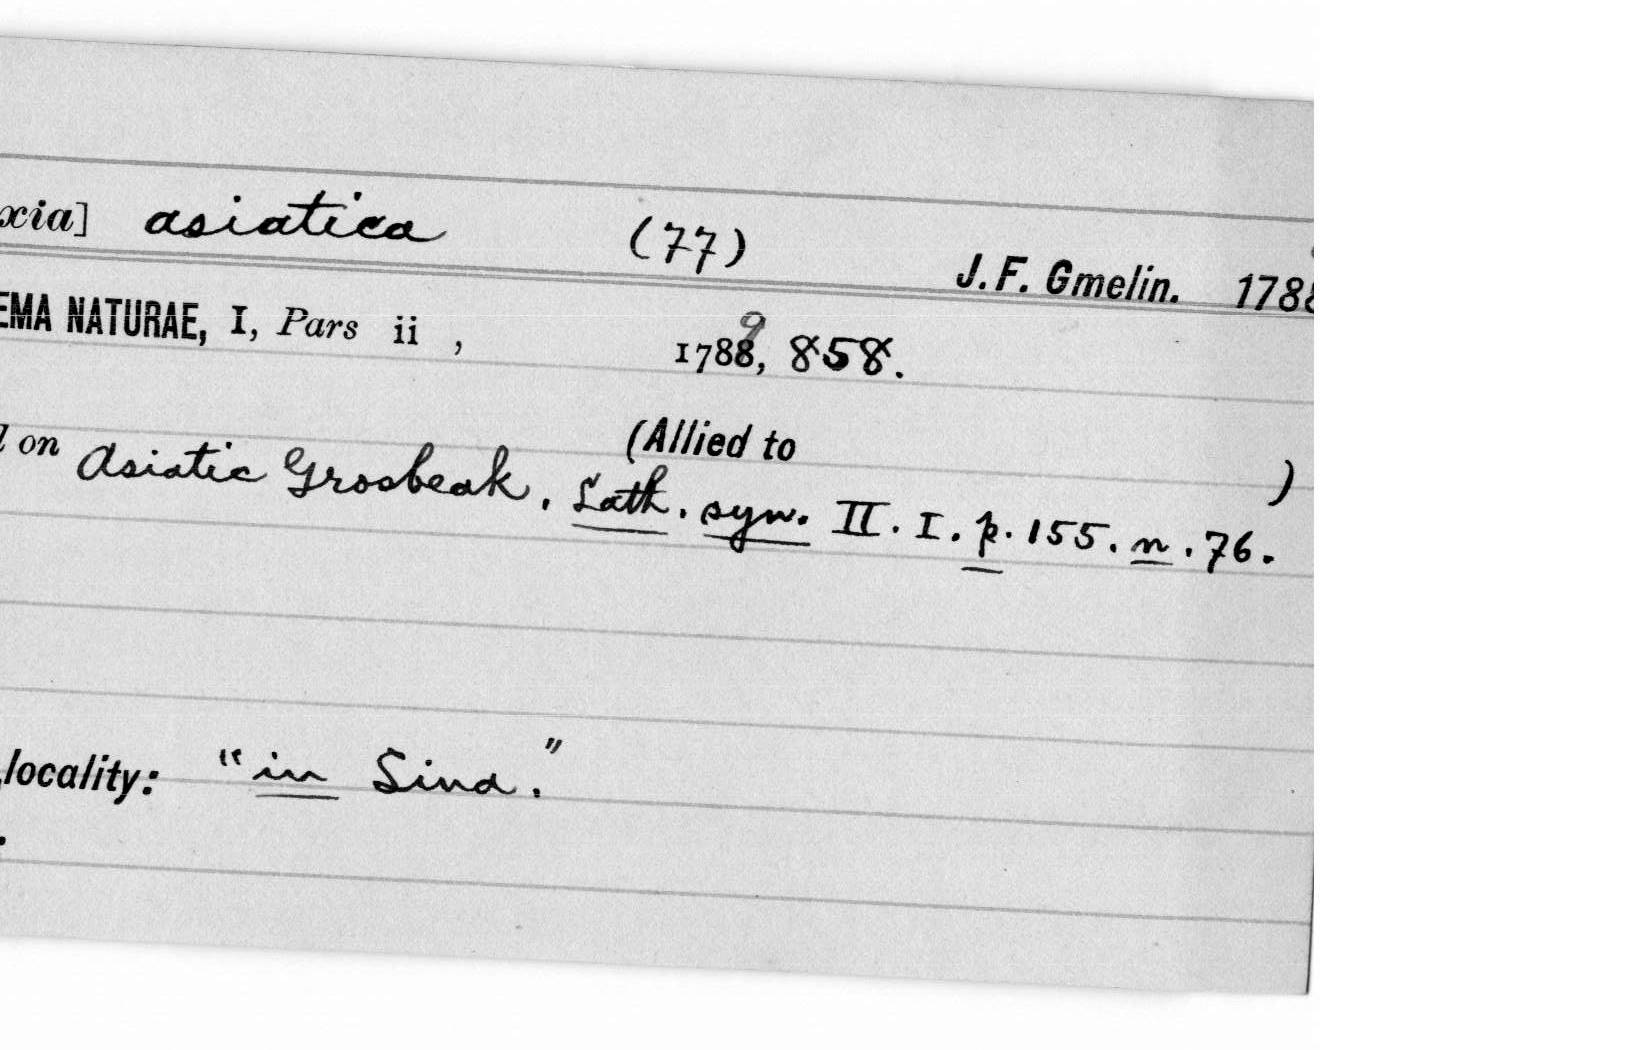 xia] asiatica (77) J. F. Gmelin. 1788
EMA NATURAE, I, Pars ii , 1788, 9 858.
(Allied to )
l on Asiatic Grosbeak. Lath. syn. II. I. p. 155. n. 76.
locality: "in Sina."